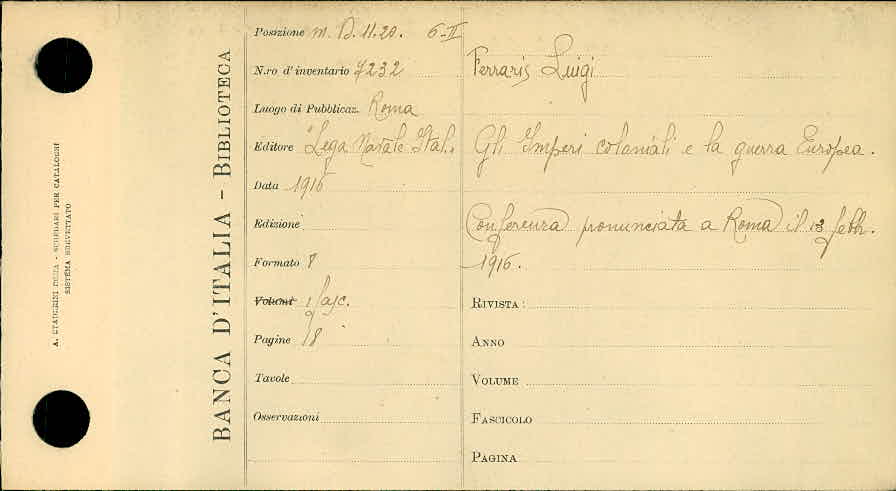 A. STADERINI ROMA - SCHEDARI PER CATALOGHI
SISTEMA BREVETTATO
BANCA D'ITALIA - BIBLIOTECA
Posizione M. D. 11.20. 6-II
N.ro d'inventario 7232
Luogo di Pubblicaz. Roma
Editore "Lega Navale Ital."
Data 1916
Edizione
Formato 8
Volumi 1 fasc.
Pagine 18
Tavole
Osservazioni
Ferraris Luigi
Gli Imperi coloniali e la guerra Europea.
Conferenza pronunciata a Roma il 13 febb.
1916.
RIVISTA:
ANNO
VOLUME
FASCICOLO
PAGINA